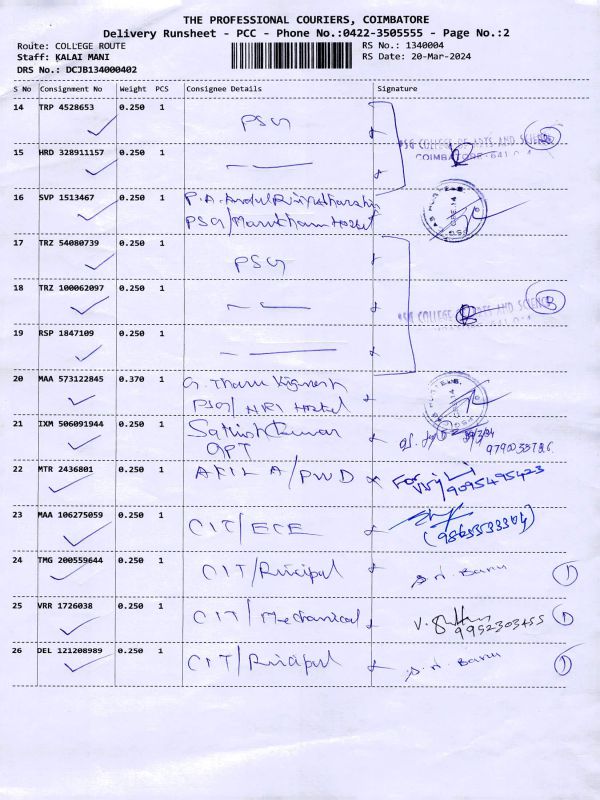 THE PROFESSIONAL COURIERS, COIMBATORE
Delivery Runsheet - PCC - Phone No.:0422-3505555 - Page No.:2
Route: COLLEGE ROUTE
Staff: KALAI MANI
DRS No.: DCJB134000402
RS No.: 1340004
RS Date: 20-Mar-2024
S No Consignment No Weight PCS Consignee Details Signature
14 TRP 4528653 0.250 1 PSG
PSG COLLEGE OF ARTS AND SCIENCE
15 HRD 328911157 0.250 1
COIMBATORE-641 014
16 SVP 1513467 0.250 1
PSG/Marutham Hostel
17 TRZ 54080739 0.250 1 PSG
18 TRZ 100062097 0.250 1
PSG COLLEGE OF ARTS AND SCIENCE
19 RSP 1847109 0.250 1
20 MAA 573122845 0.370 1 G. Tharu Vignesh
PSG/NRI Hostel
21 IXM 506091944 0.250 1 Sathish Kumar
GPT
22 MTR 2436801 0.250 1 AKILA/PWD 9095495423
23 MAA 106275059 0.250 1 CIT/ECE
24 TMG 200559644 0.250 1 CIT/Principal S.N. Banu 1
25 VRR 1726038 0.250 1 CIT/Mechanical 9952303455 1
26 DEL 121208989 0.250 1 CIT/Principal S.N. Banu 1